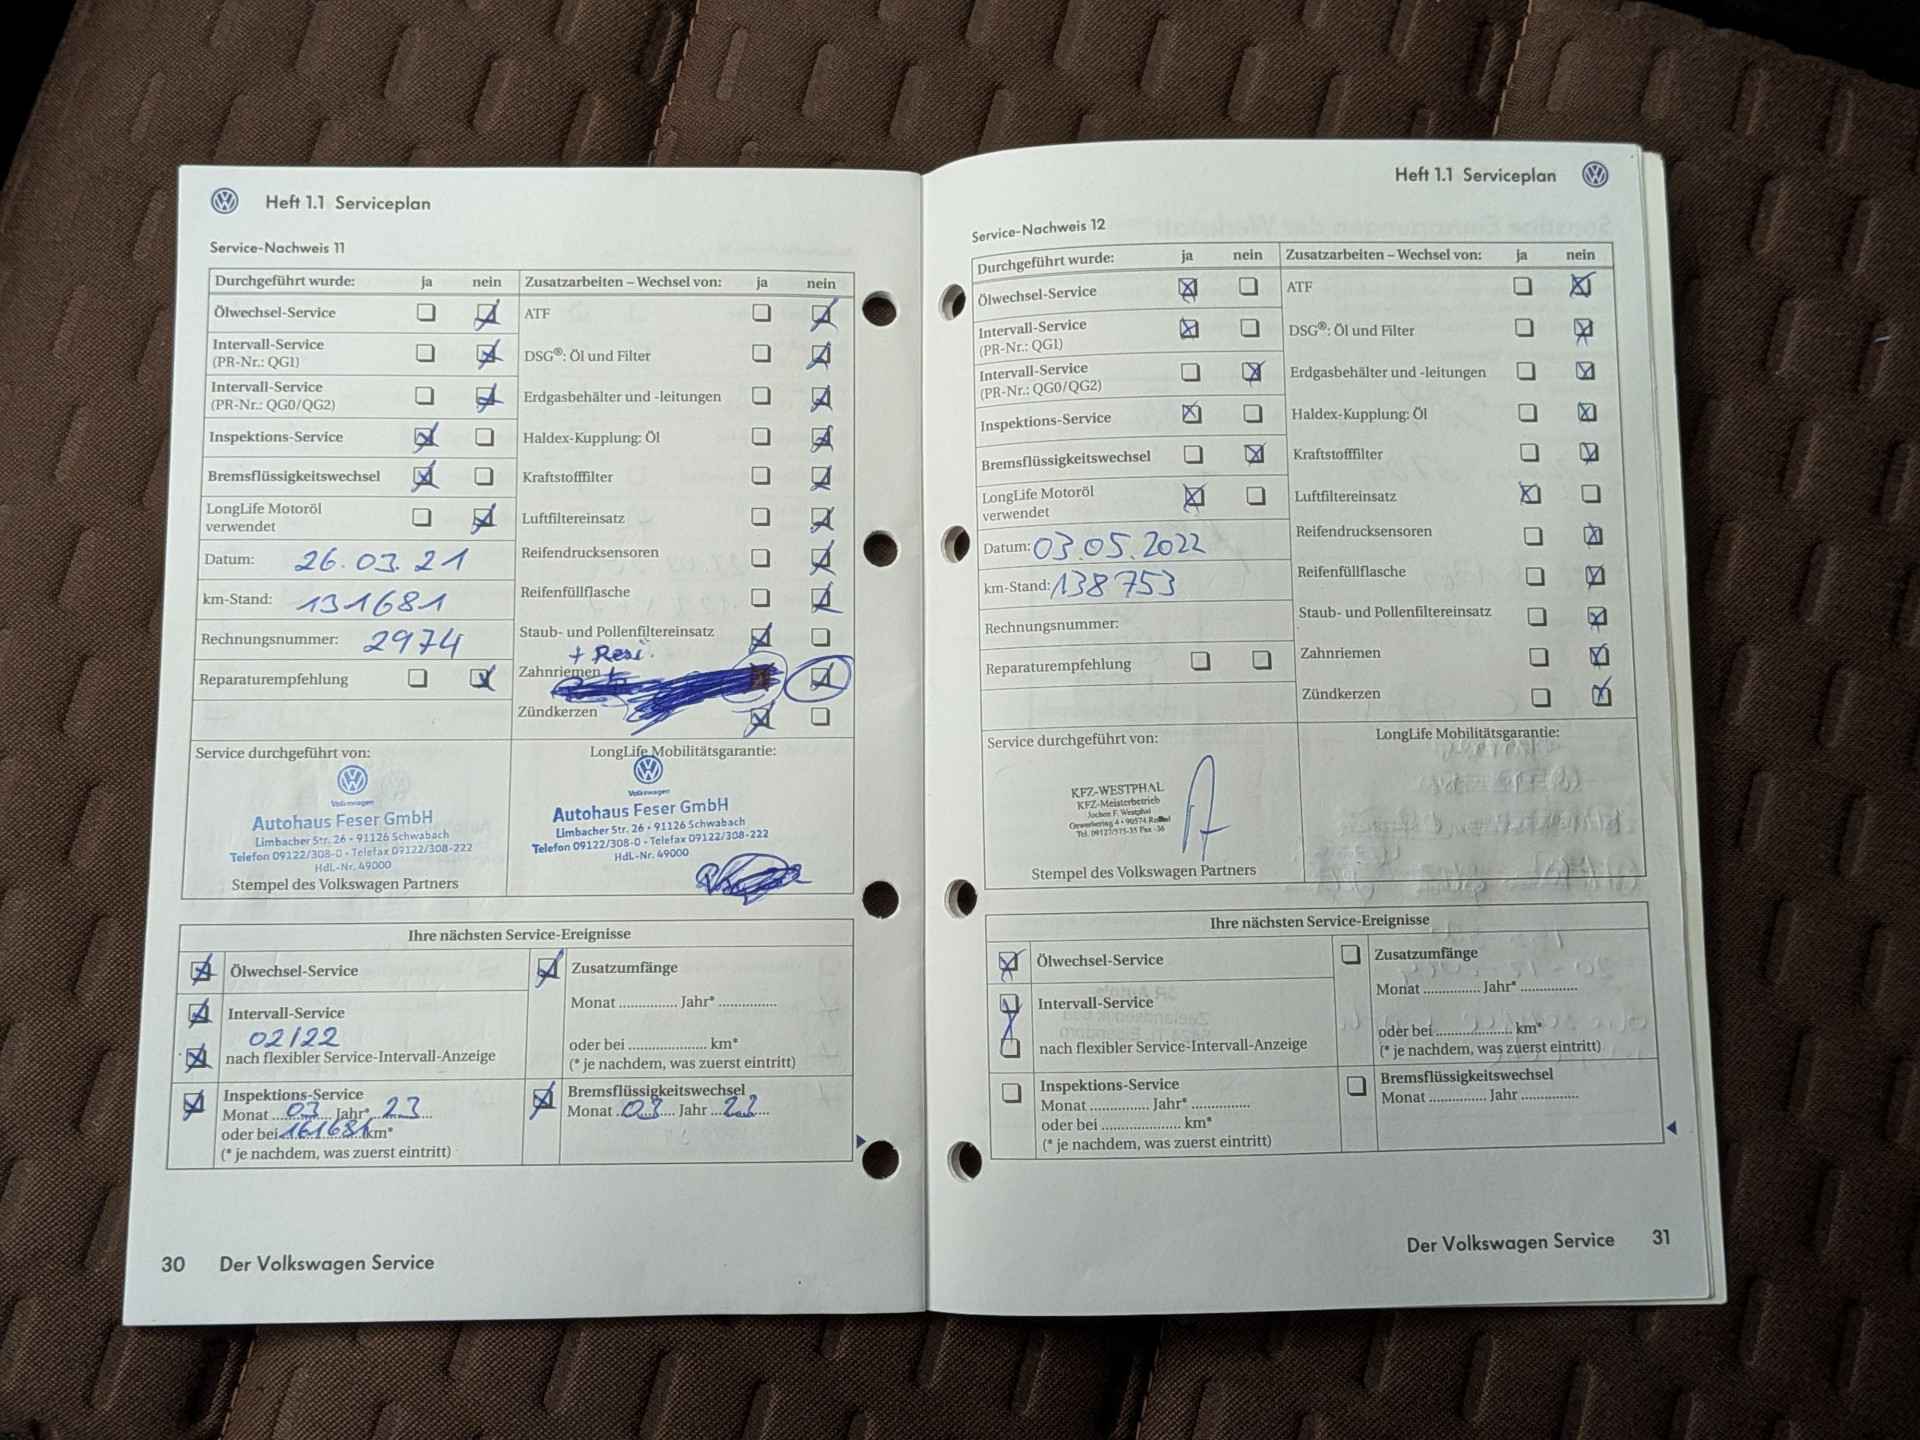 Heft 1.1 Serviceplan
Service-Nachweis 11
Durchgeführt wurde: ja nein
Ölwechsel-Service
Intervall-Service
(PR-Nr.: QG1)
Intervall-Service
(PR-Nr.: QG0/QG2)
Inspektions-Service
Bremsflüssigkeitswechsel
LongLife Motoröl
verwendet
Datum: 26.03.21
km-Stand: 131681
Rechnungsnummer: 2974
Reparaturempfehlung
Zusatzarbeiten – Wechsel von: ja nein
ATF
DSG®: Öl und Filter
Erdgasbehälter und -leitungen
Haldex-Kupplung: Öl
Kraftstofffilter
Luftfiltereinsatz
Reifendrucksensoren
Reifenfüllflasche
Staub- und Pollenfiltereinsatz
Zahnriemen
Zündkerzen
Service durchgeführt von:
Volkswagen
Autohaus Feser GmbH
Limbacher Str. 26 • 91126 Schwabach
Telefon 09122/308-0 • Telefax 09122/308-222
Hdl.-Nr. 49000
Stempel des Volkswagen Partners
LongLife Mobilitätsgarantie:
Volkswagen
Autohaus Feser GmbH
Limbacher Str. 26 • 91126 Schwabach
Telefon 09122/308-0 • Telefax 09122/308-222
Hdl.-Nr. 49000
Ihre nächsten Service-Ereignisse
Ölwechsel-Service
Intervall-Service
02/22
nach flexibler Service-Intervall-Anzeige
Inspektions-Service
Monat 03 Jahr* 23
oder bei 161681 km*
(* je nachdem, was zuerst eintritt)
Zusatzumfänge
Monat ............... Jahr* ...............
oder bei .................... km*
(* je nachdem, was zuerst eintritt)
Bremsflüssigkeitswechsel
Monat 03 Jahr 23
30 Der Volkswagen Service
Heft 1.1 Serviceplan
Service-Nachweis 12
Durchgeführt wurde: ja nein
Ölwechsel-Service
Intervall-Service
(PR-Nr.: QG1)
Intervall-Service
(PR-Nr.: QG0/QG2)
Inspektions-Service
Bremsflüssigkeitswechsel
LongLife Motoröl
verwendet
Datum: 03.05.2022
km-Stand: 138753
Rechnungsnummer:
Reparaturempfehlung
Zusatzarbeiten – Wechsel von: ja nein
ATF
DSG®: Öl und Filter
Erdgasbehälter und -leitungen
Haldex-Kupplung: Öl
Kraftstofffilter
Luftfiltereinsatz
Reifendrucksensoren
Reifenfüllflasche
Staub- und Pollenfiltereinsatz
Zahnriemen
Zündkerzen
Service durchgeführt von:
KFZ-WESTPHAL
KFZ-Meisterbetrieb
Jochen F. Westphal
Gewerbering 4 • 90574
Tel. 09127/575-35 Fax -36
Stempel des Volkswagen Partners
LongLife Mobilitätsgarantie:
Ihre nächsten Service-Ereignisse
Ölwechsel-Service
Intervall-Service
nach flexibler Service-Intervall-Anzeige
Inspektions-Service
Monat ............... Jahr* ...............
oder bei .................... km*
(* je nachdem, was zuerst eintritt)
Zusatzumfänge
Monat ............... Jahr* ...............
oder bei .................... km*
(* je nachdem, was zuerst eintritt)
Bremsflüssigkeitswechsel
Monat ............... Jahr ...............
Der Volkswagen Service 31